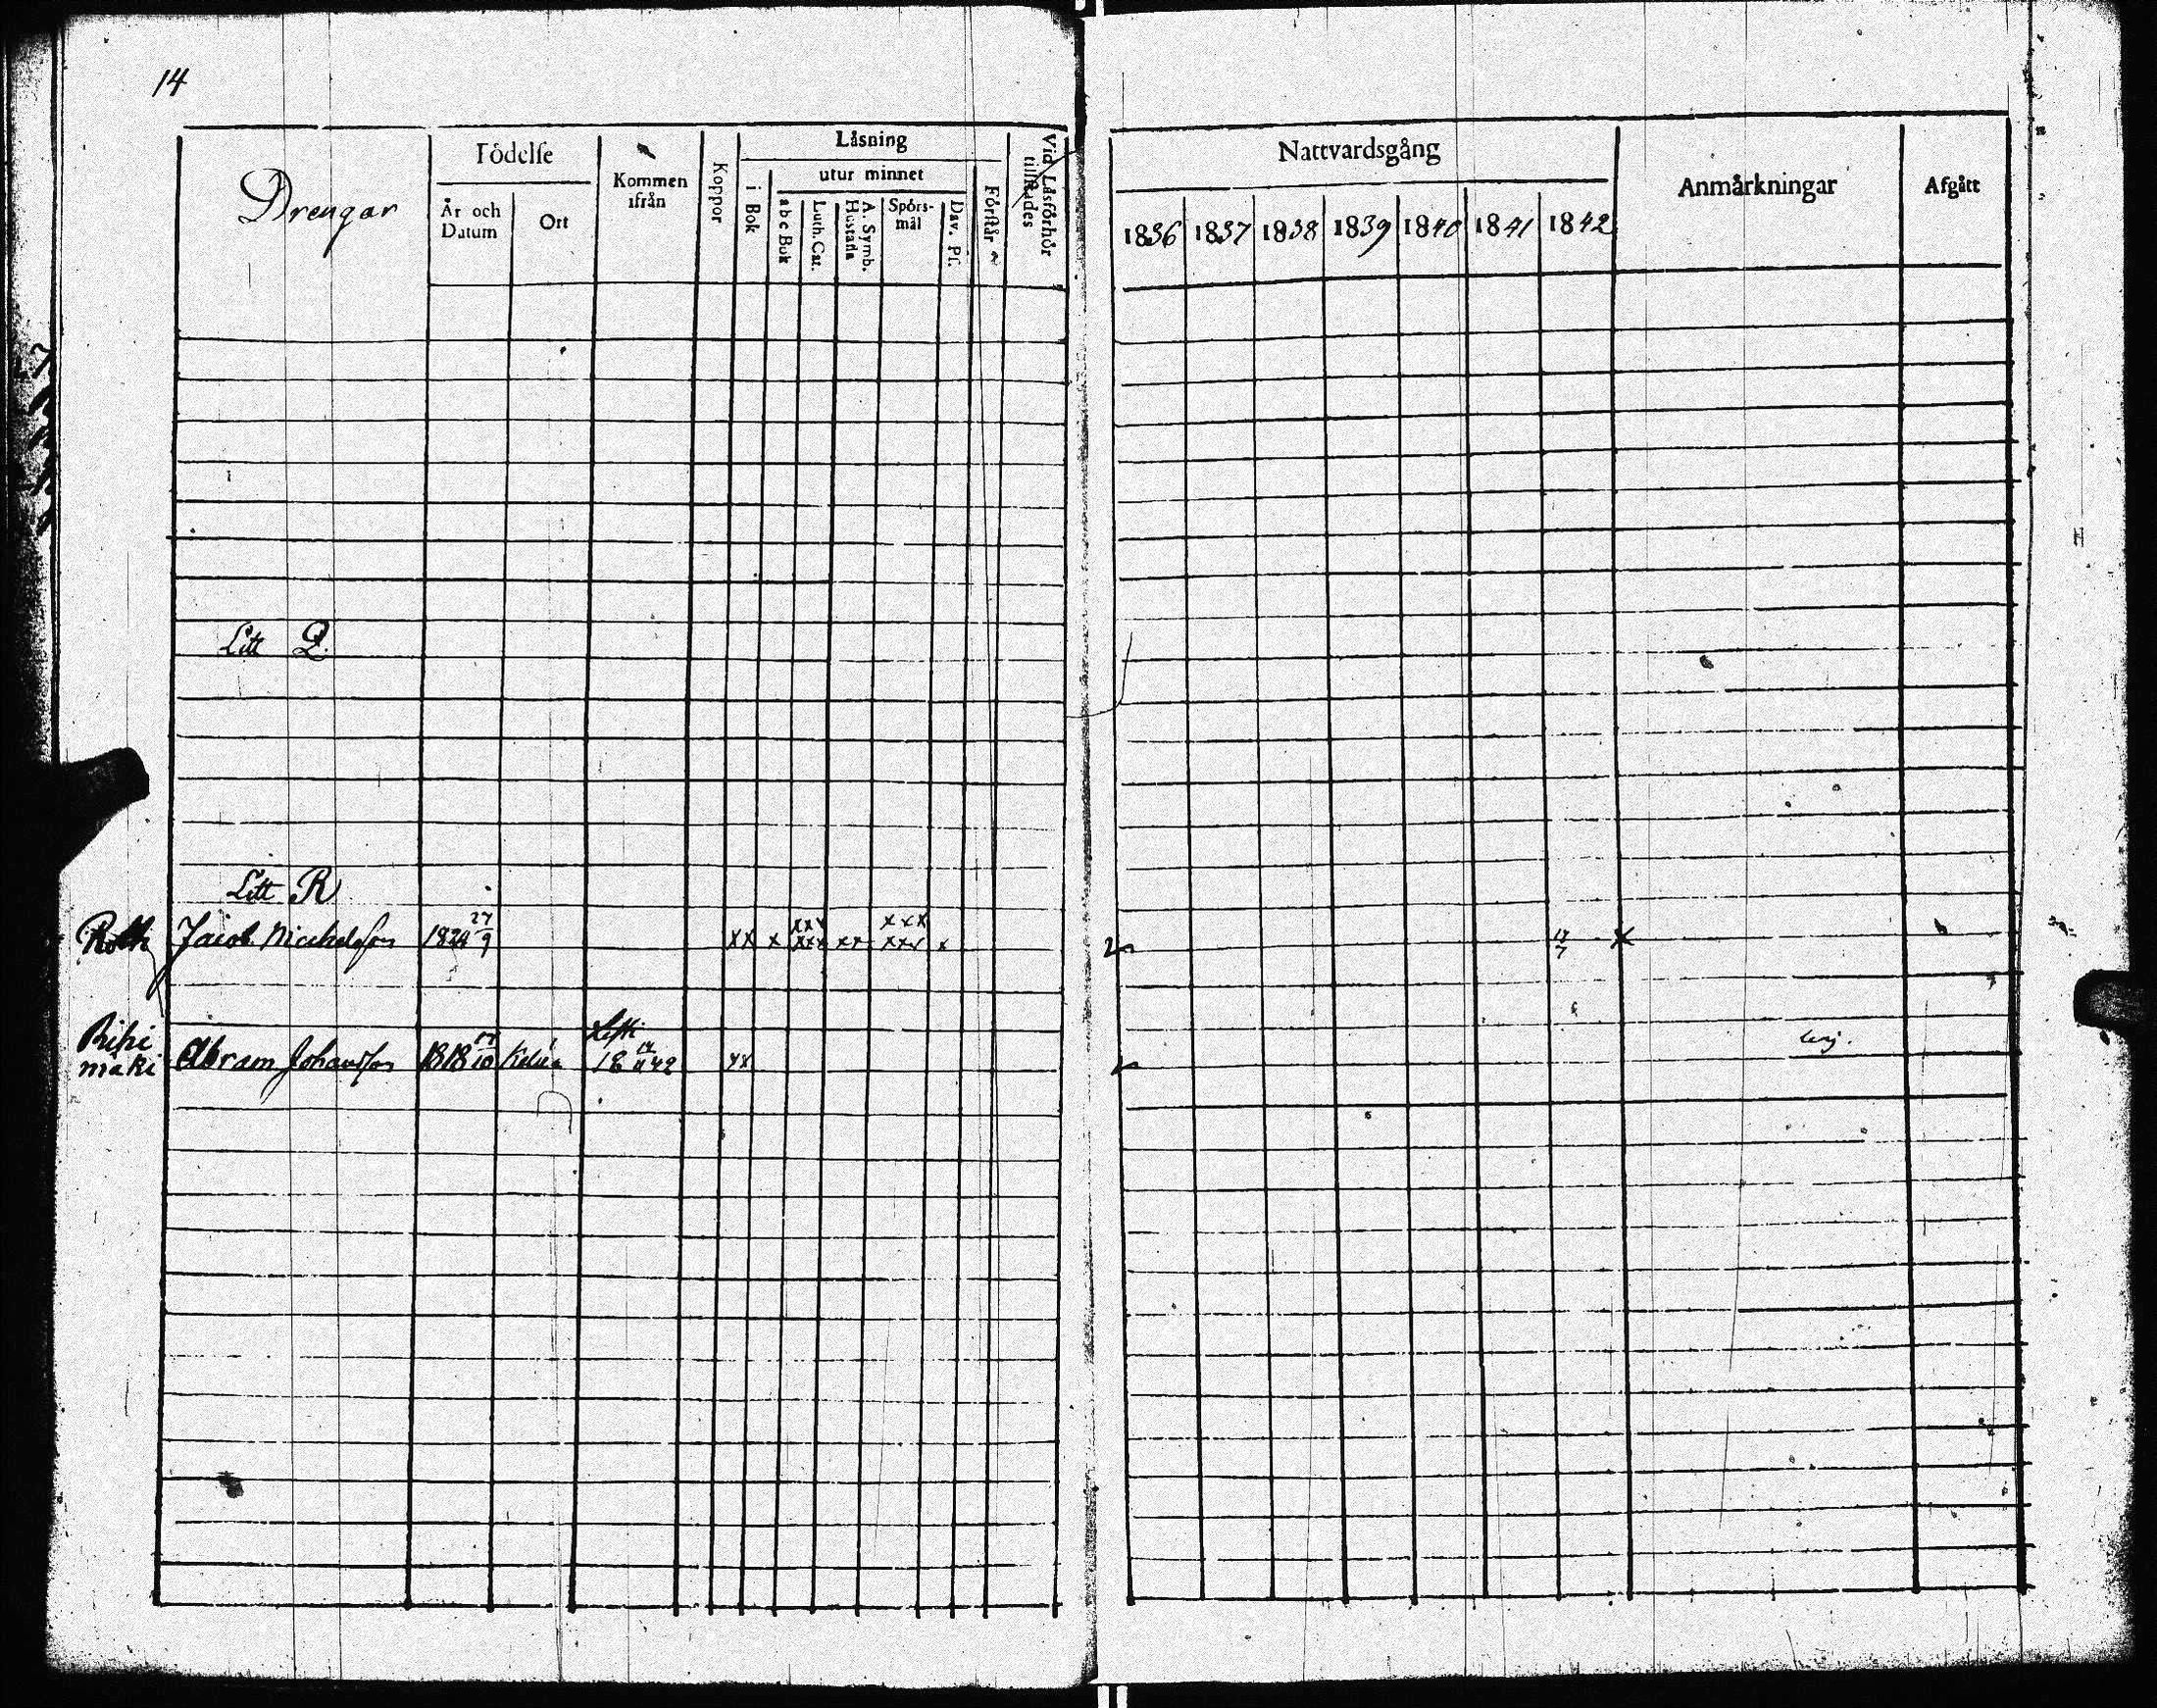 14
Drengar
Födelse
År och Datum
Ort
Kommen ifrån
Koppor
Läsning
i Bok
utur minnet
abc Bok
Luth. Cat.
A. Symb. Hustafla
Spörs-mål
Dav. Ps.
Förstår
Vid Läsförhör tillstädes
Nattvardsgång
1836 1837 1838 1839 1840 1841 1842
Anmärkningar
Afgått
Litt Q.
Litt R
Roth Jacob Michelsson 1824 27/9 xx x xxx xxx xx xxx xxx x 17/7 x
Riihimäki Abram Johansson 1818 17/10 18 42 xx